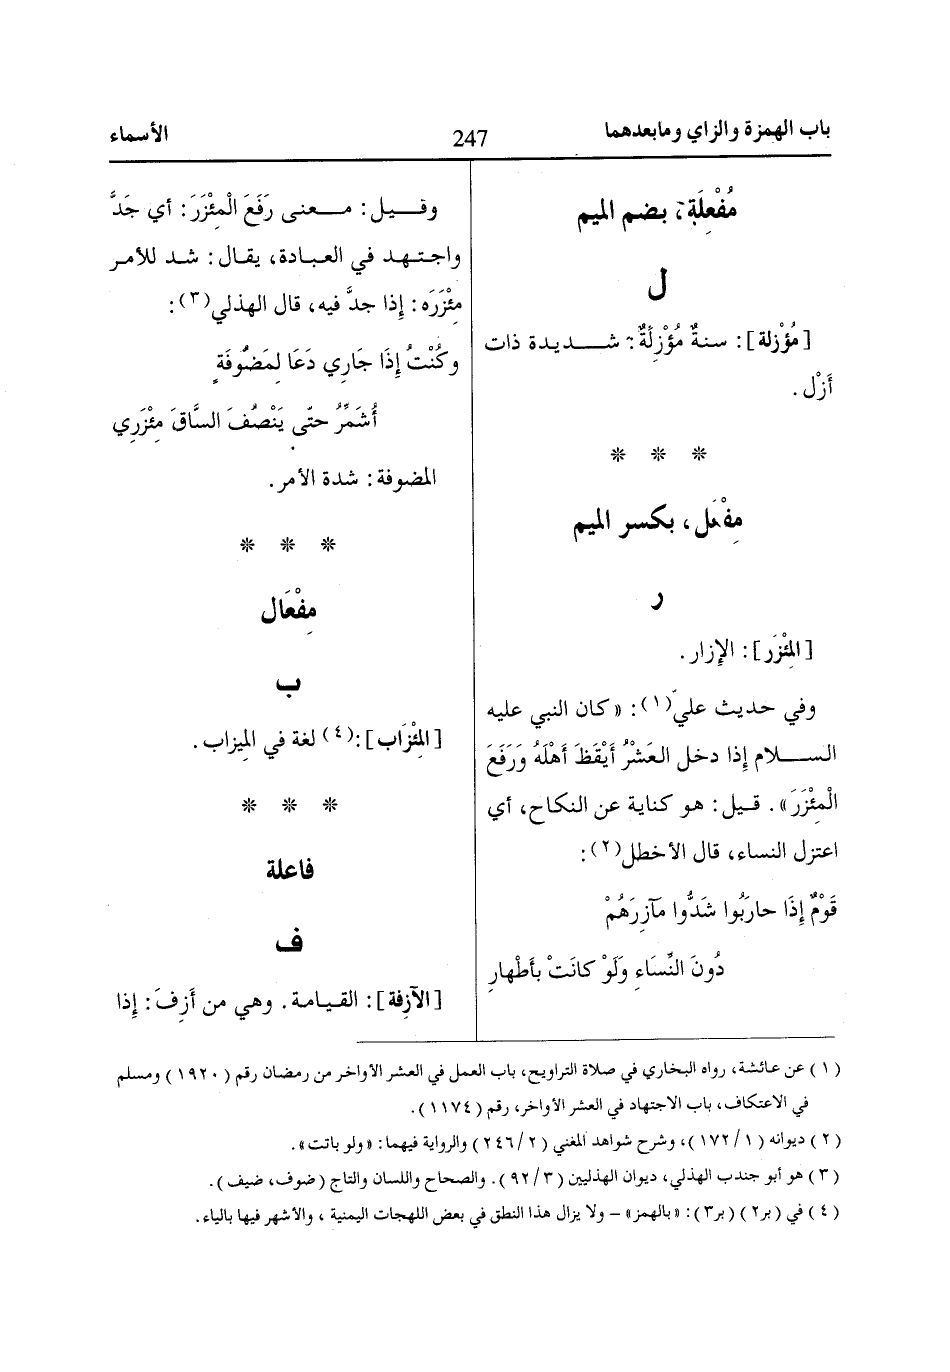 باب الهمزة والزاي ومابعدهما
247
الأسماء
مُفْعِلَة، بضم الميم
ل
[مُؤْزلة]: سنةٌ مُؤْزِلَةٌ: شديدة ذات
أَزْل.
* * *
مِفْعَل، بكسر الميم
ر
[المِئْزَر]: الإزار.
وفي حديث عليّ(١): «كان النبي عليه
السلام إذا دخل العَشْرُ أَيْقَظَ أَهْلَهُ وَرَفَعَ
الْمِئْزَرَ». قيل: هو كناية عن النكاح، أي
اعتزل النساء، قال الأخطل(٢):
قَوْمٌ إِذَا حارَبُوا شَدُّوا مآزِرَهُمْ
دُونَ النِّسَاءِ وَلَوْ كانَتْ بأَطْهارِ
وقيل: معنى رَفَعَ الْمِئْزَرَ: أي جَدَّ
واجتهد في العبادة، يقال: شد للأمر
مِئْزَرَه: إِذا جدَّ فيه، قال الهذلي(٣):
وكُنْتُ إِذَا جَارِي دَعَا لِمَضُوفَةٍ
أُشَمِّرُ حتّى يَنْصُفَ السَّاقَ مِئْزَرِي
المضوفة: شدة الأمر.
* * *
مِفْعَال
ب
[المِئْزَاب]:(٤) لغة في الميزاب.
* * *
فاعلة
ف
[الآزِفة]: القيامة. وهي من أَزِفَ: إِذا
(١) عن عائشة، رواه البخاري في صلاة التراويح، باب العمل في العشر الأواخر من رمضان رقم (١٩٢٠) ومسلم
في الاعتكاف، باب الاجتهاد في العشر الأواخر، رقم (١١٧٤).
(٢) ديوانه (١/ ١٧٢)، وشرح شواهد المغني (٢/ ٢٤٦) والرواية فيهما: «ولو باتت».
(٣) هو أبو جندب الهذلي، ديوان الهذليين (٣/ ٩٢). والصحاح واللسان والتاج (ضوف، ضيف).
(٤) في (بر٢) (بر٣): «بالهمز» – ولا يزال هذا النطق في بعض اللهجات اليمنية، والأشهر فيها بالياء.